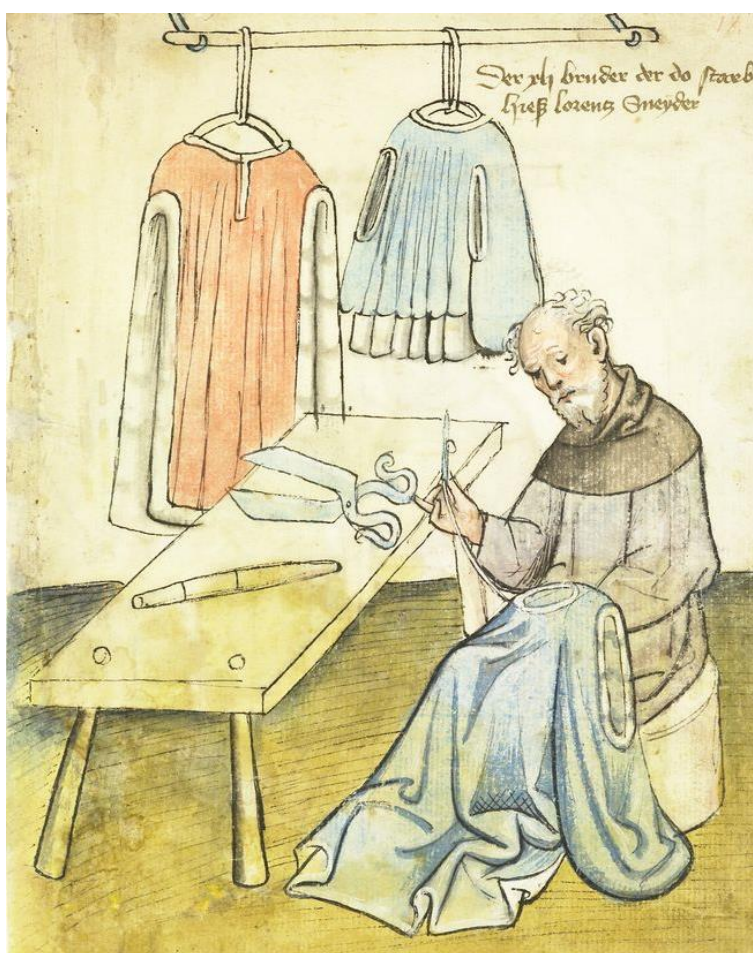 18.
Der xli bruder der do starb
hieß lorentz Sneyder